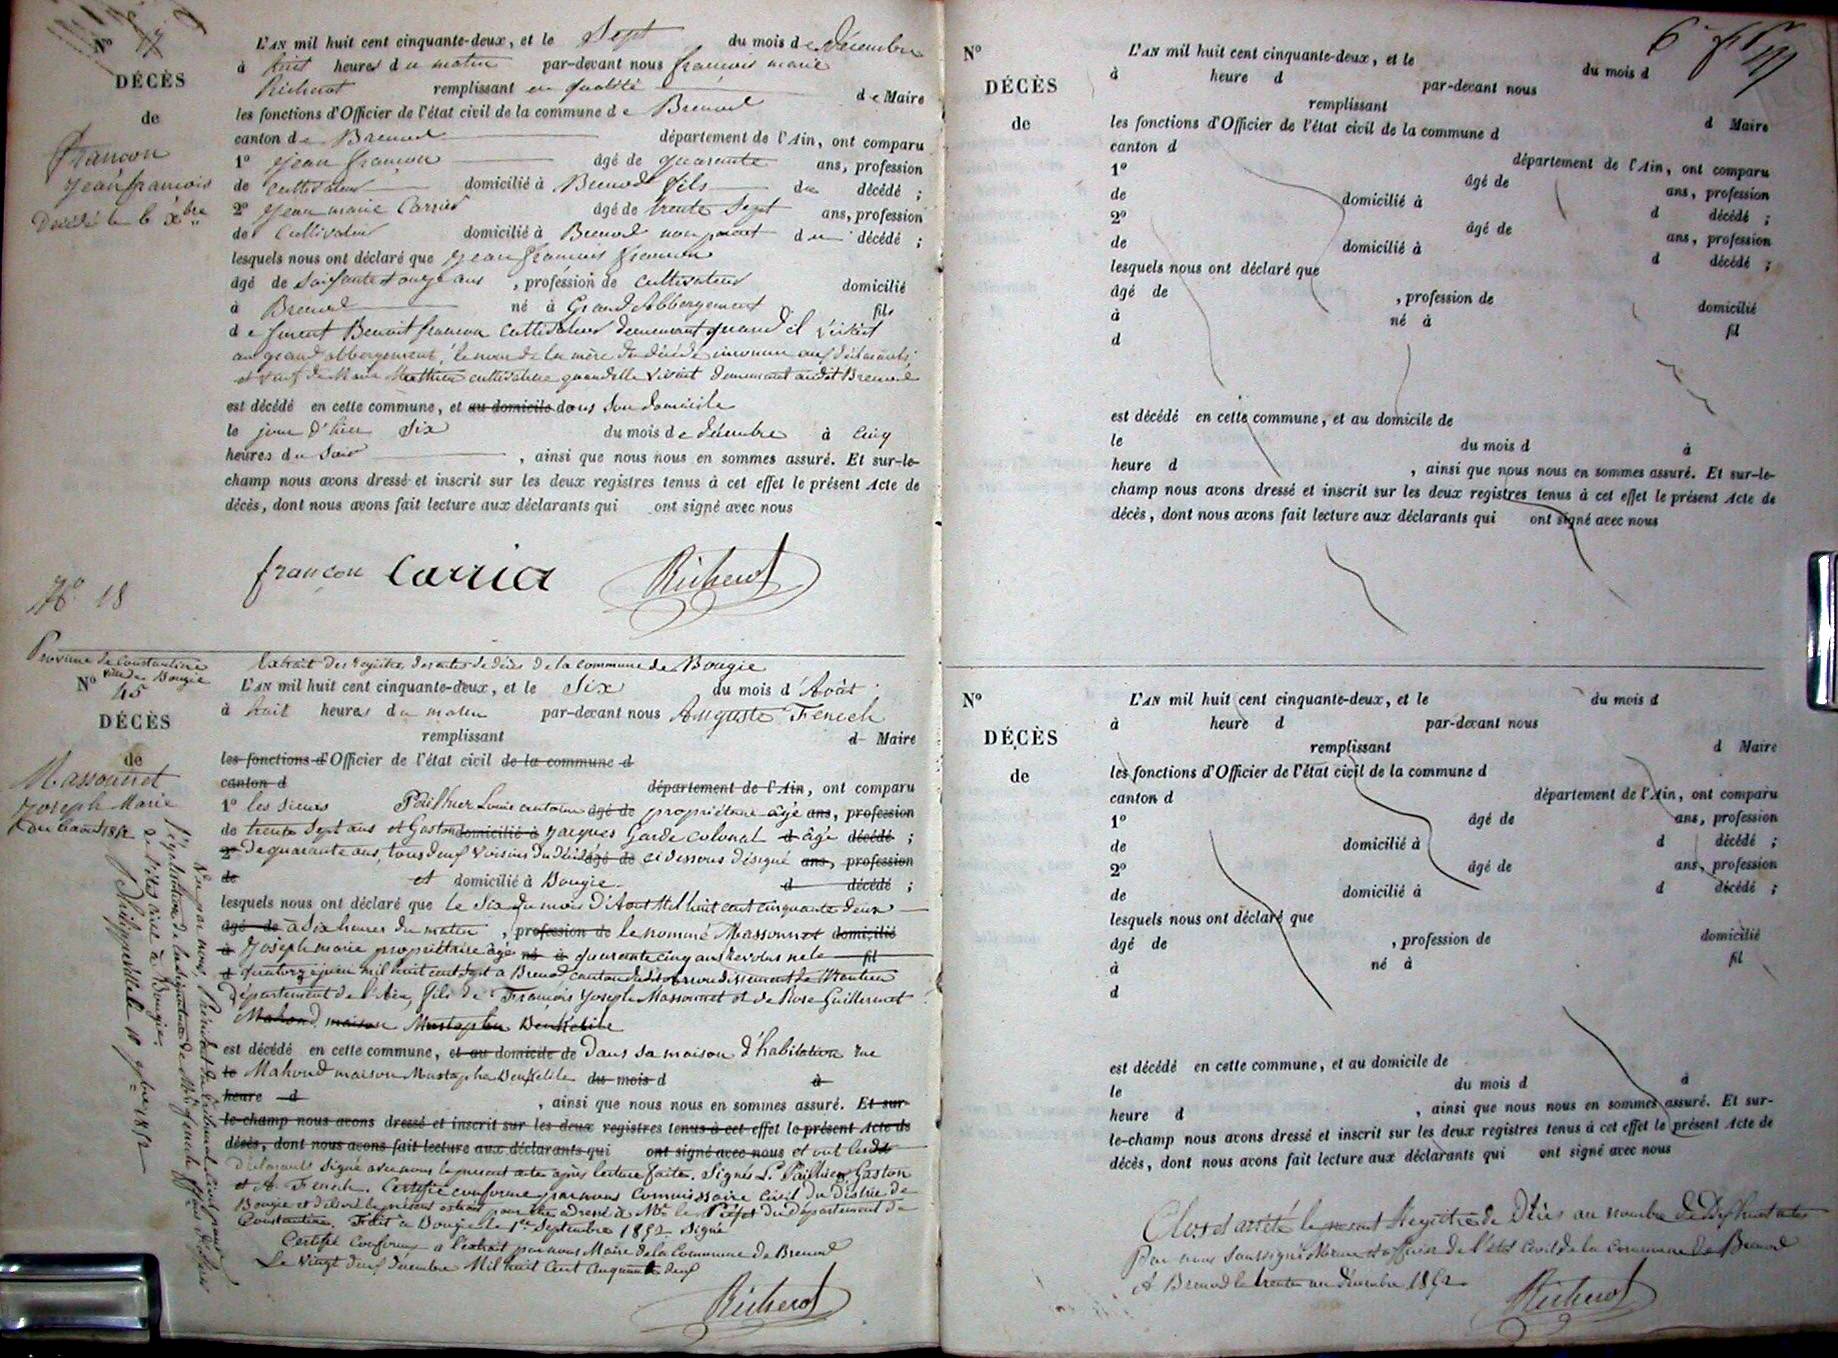 N° 17
DÉCÈS
de
françon
Jean françois
Décédé le 6 Xbre
L'AN mil huit cent cinquante-deux, et le Sept du mois de Décembre
à huit heures du matin par-devant nous françois marie
Richerot remplissant en qualité de Maire
les fonctions d'Officier de l'état civil de la commune de Brenod
canton de Brenod département de l'Ain, ont comparu
1° Jean françon âgé de quarante ans, profession
de cultivateur domicilié à Brenod fils du décédé ;
2° Jean marie Carrier âgé de trente Sept ans, profession
de Cultivateur domicilié à Brenod non parent du décédé ;
lesquels nous ont déclaré que Jean françois françon
âgé de Soixante et onze ans, profession de cultivateur domicilié
à Brenod né à Grand Abbergement fils
de furent Benoit françon cultivateur demeurant quand il vivait
au grand abbergement, le nom de la mère du décédé inconnu aux déclarants,
et veuf de Marie Mathieu cultivatrice quand elle vivait demeurant audit Brenod
est décédé en cette commune, et au domicile dans Son domicile
le jour d'hier Six du mois de décembre à Cinq
heures du Soir, ainsi que nous nous en sommes assuré. Et sur-le-
champ nous avons dressé et inscrit sur les deux registres tenus à cet effet le présent Acte de
décès, dont nous avons fait lecture aux déclarants qui ont signé avec nous
françon Carrier Richerot
N° 18
Province de Constantine
Ville de Bougie
N° 45
DÉCÈS
de
Massonnet
Joseph Marie
du 6 août 1852
Extrait des registres des actes de décès de la commune de Bougie
L'AN mil huit cent cinquante-deux, et le Six du mois d'Août
à huit heures du matin par-devant nous Auguste Fenech
remplissant d Maire
les fonctions d'Officier de l'état civil de la commune d
canton d département de l'Ain, ont comparu
1° les sieurs Pailhier Louis antoine âgé de propriétaire âgé ans, profession
de trente Sept ans et Gaston domicilié à Jacques Garde colonial d âgé décédé ;
2° de quarante ans, tous deux voisins du décédé âgé de ci dessous désigné ans, profession
de et domicilié à Bougie d décédé ;
lesquels nous ont déclaré que le Six du mois d'Aout Mil huit cent cinquante deux
âgé de à Six heures du matin, profession de le nommé Massonnet domicilié
à Joseph marie propriétaire âgé né à quarante cinq ans révolus né le fil
d quatorze juin mil huit cent Sept à Brenod canton dudit arrondissement de Nantua
Département de l'Ain, fils de François Joseph Massonnet et de Rose Guillermet
Mahond maison Mustapha Benkelile
est décédé en cette commune, et au domicile de Dans sa maison d'habitation rue
le Mahond maison Mustapha Benkelile du mois d à
heure d, ainsi que nous nous en sommes assuré. Et sur-
le-champ nous avons dressé et inscrit sur les deux registres tenus à cet effet le présent Acte de
décès, dont nous avons fait lecture aux déclarants qui ont signé avec nous et ont lesdits
Déclarants Signé avec nous le présent acte après lecture faite. Signés L. Pailhier, Gaston
et A. Fenech. Certifié conforme par nous Commissaire Civil du District de
Bougie et délivré le présent extrait pour être adressé à Mr le Préfet du Département de
Constantine. Fait à Bougie le 1er Septembre 1852 Signé
Certifié Conforme à l'extrait par nous Maire de la Commune de Brenod
Le Vingt deux décembre Mil huit Cent cinquante deux
Richerot
Vu par nous, Président du tribunal civil pour
légalisation de la signature de Mr fenech officier
de l'état civil à Bougie.
Philippeville le 10 9bre 1852
N°
DÉCÈS
de
L'AN mil huit cent cinquante-deux, et le du mois d
à heure d par-devant nous
remplissant d Maire
les fonctions d'Officier de l'état civil de la commune d
canton d département de l'Ain, ont comparu
1° âgé de ans, profession
de domicilié à d décédé ;
2° âgé de ans, profession
de domicilié à d décédé ;
lesquels nous ont déclaré que
âgé de , profession de domicilié
à né à fil
d
est décédé en cette commune, et au domicile de
le du mois d à
heure d , ainsi que nous nous en sommes assuré. Et sur-le-
champ nous avons dressé et inscrit sur les deux registres tenus à cet effet le présent Acte de
décès, dont nous avons fait lecture aux déclarants qui ont signé avec nous
N°
DÉCÈS
de
L'AN mil huit cent cinquante-deux, et le du mois d
à heure d par-devant nous
remplissant d Maire
les fonctions d'Officier de l'état civil de la commune d
canton d département de l'Ain, ont comparu
1° âgé de ans, profession
de domicilié à d décédé ;
2° âgé de ans, profession
de domicilié à d décédé ;
lesquels nous ont déclaré que
âgé de , profession de domicilié
à né à fil
d
est décédé en cette commune, et au domicile de
le du mois d à
heure d , ainsi que nous nous en sommes assuré. Et sur-
le-champ nous avons dressé et inscrit sur les deux registres tenus à cet effet le présent Acte de
décès, dont nous avons fait lecture aux déclarants qui ont signé avec nous
Clos et arrêté le présent Registre de Décès au nombre de Dix huit actes
Par nous Soussigné Maire et officier de l'état civil de la commune de Brenod
A Brenod le trente un décembre 1852
Richerot